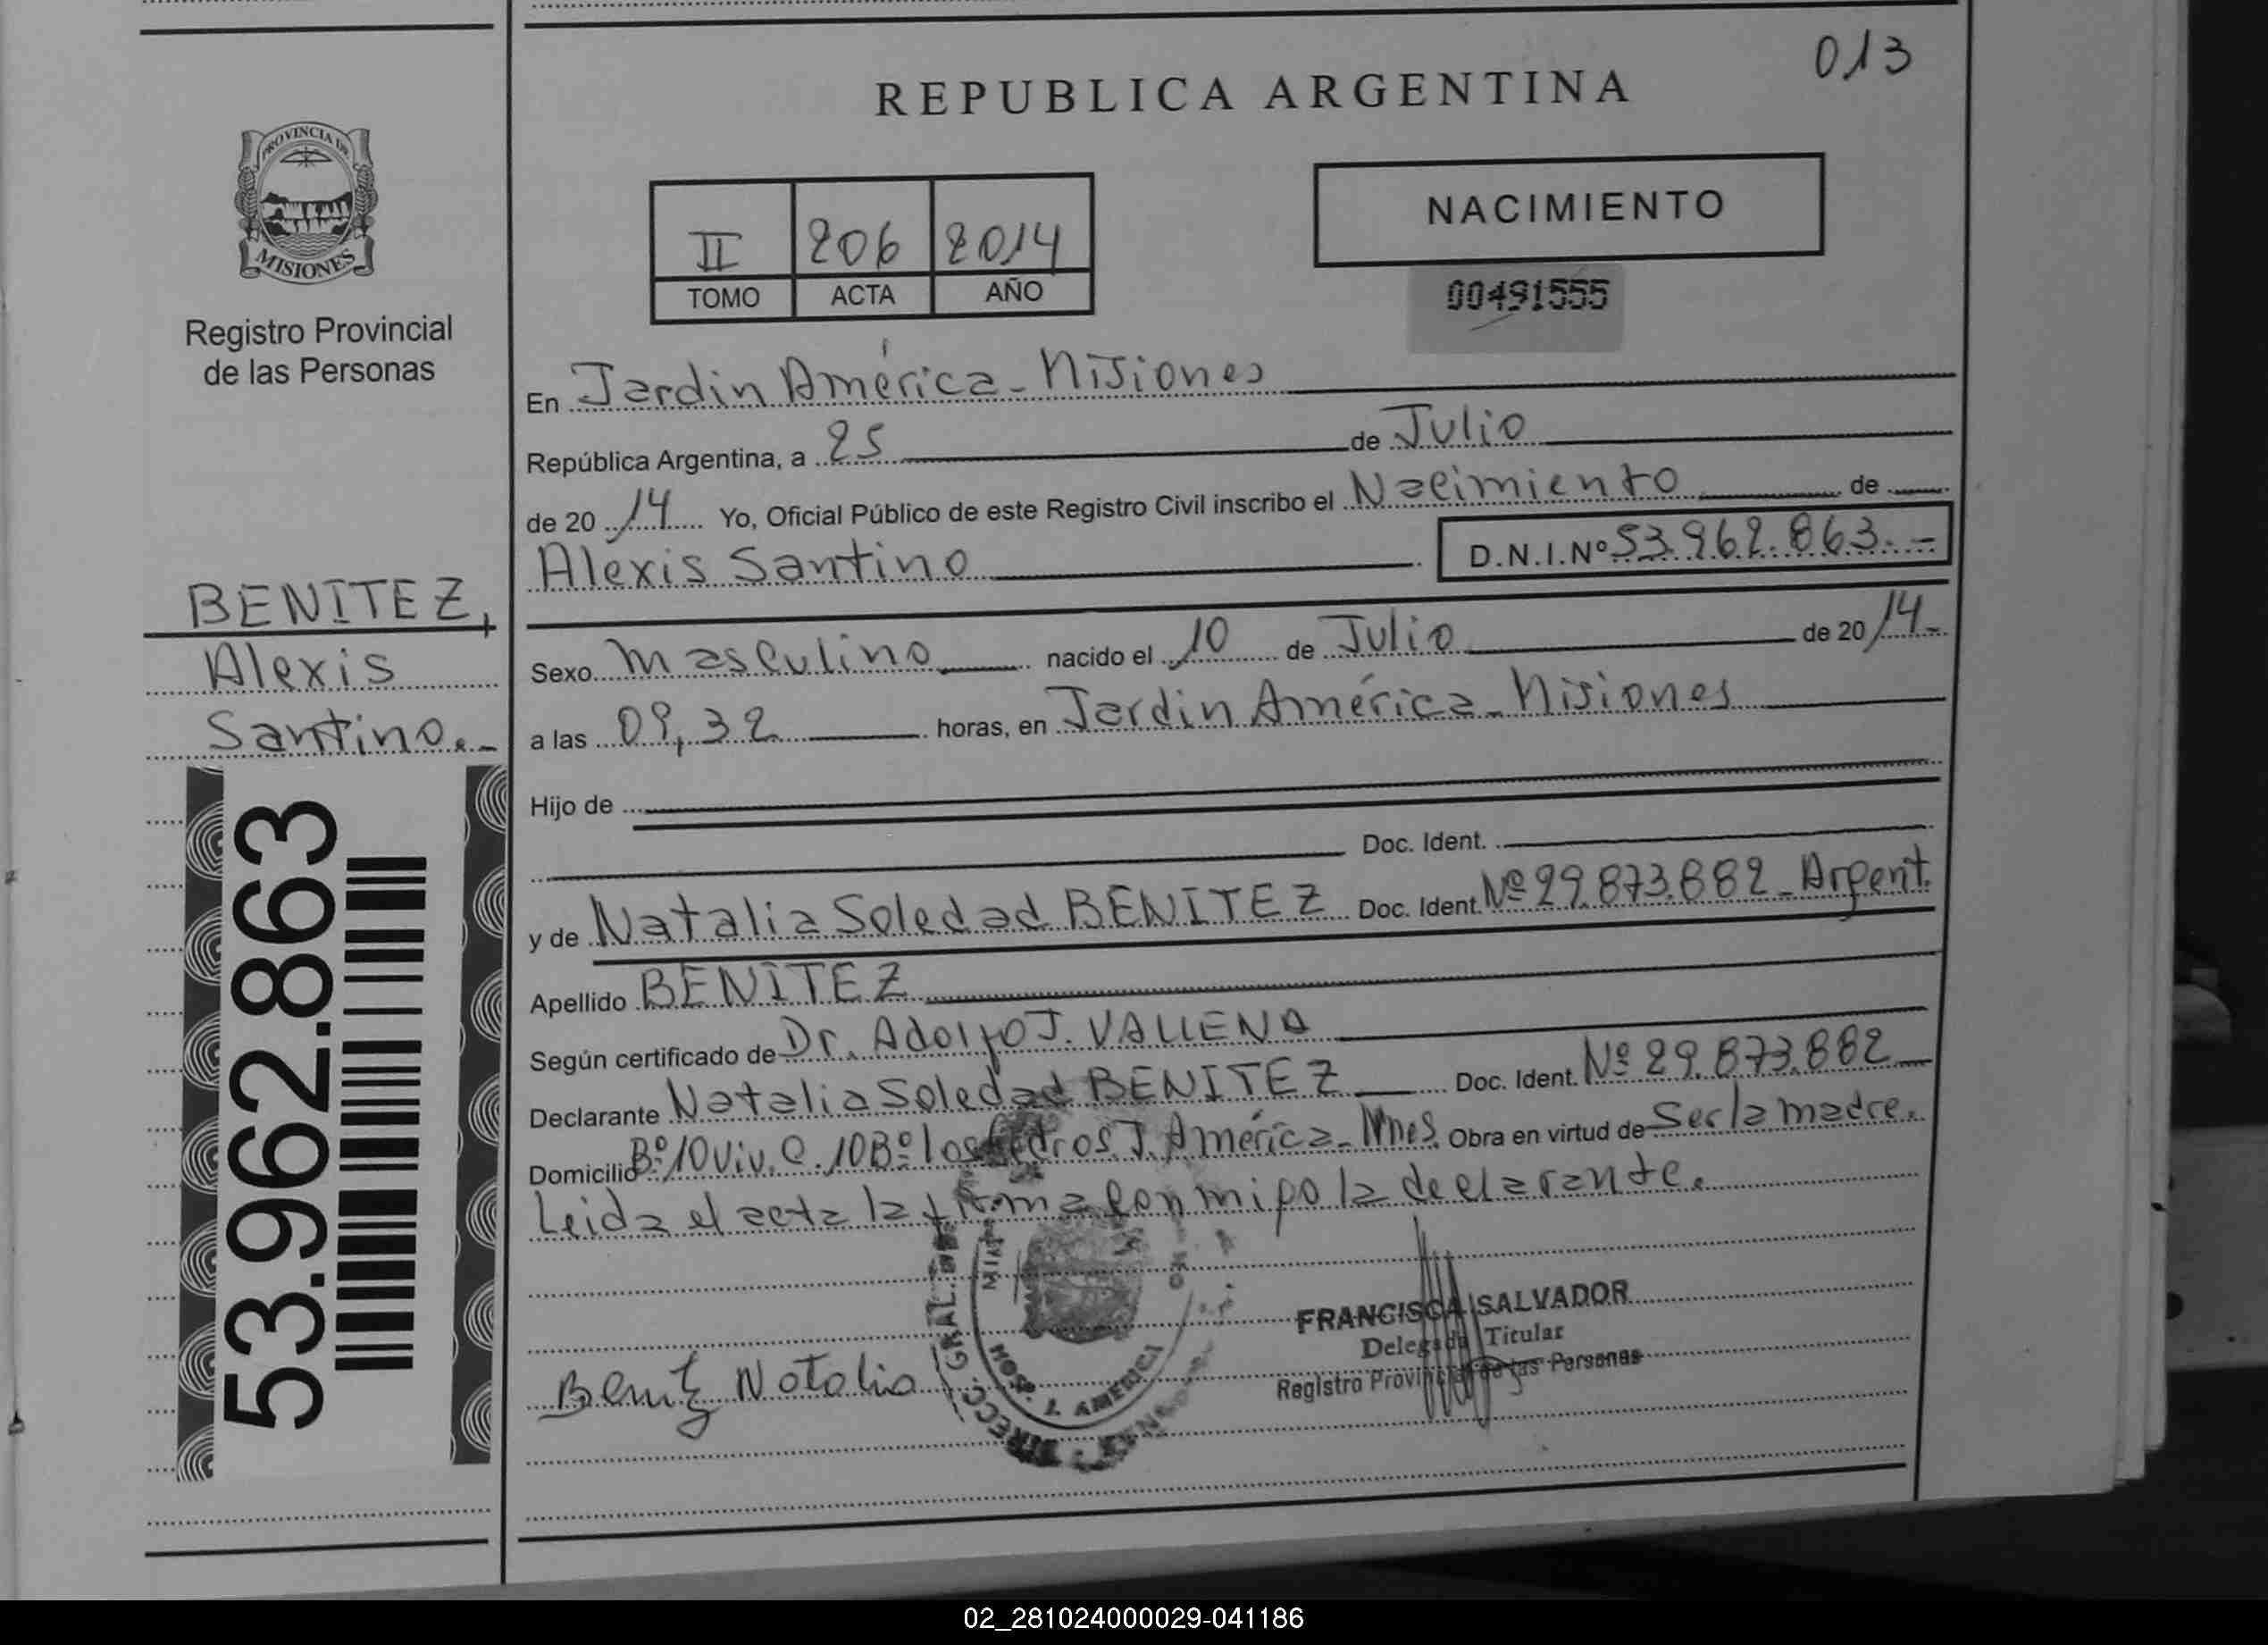 013
REPUBLICA ARGENTINA
PROVINCIA DE
MISIONES
Registro Provincial
de las Personas
II 206 2014
TOMO ACTA AÑO
NACIMIENTO
00491555
En Jardin América - Misiones
República Argentina, a 25 de Julio
de 20 14 Yo, Oficial Público de este Registro Civil inscribo el Nacimiento de
Alexis Santino D.N.I.Nº 53.962.863.-
BENITEZ,
Alexis
Santino.-
Sexo Masculino nacido el 10 de Julio de 20 14-
a las 09,32 horas, en Jardin América - Misiones
Hijo de
Doc. Ident.
y de Natalia Soledad BENITEZ Doc. Ident. Nº 29.873.882 - Argent.
Apellido BENITEZ
Según certificado de Dr. Adolfo J. VALLENA
Declarante Natalia Soledad BENITEZ Doc. Ident. Nº 29.873.882
Domicilio Bº 10 Viv. C. 10 Bº los Cedros J. América - Mnes Obra en virtud de Ser la madre.
Leida el acta la firma conmigo la declarante.
53.962.863
DIRECC. GRAL.
HOSP. J. AMERICA
Benitez Natalia
FRANCISCA SALVADOR
Delegada Titular
Registro Provincial de las Personas
02_281024000029-041186